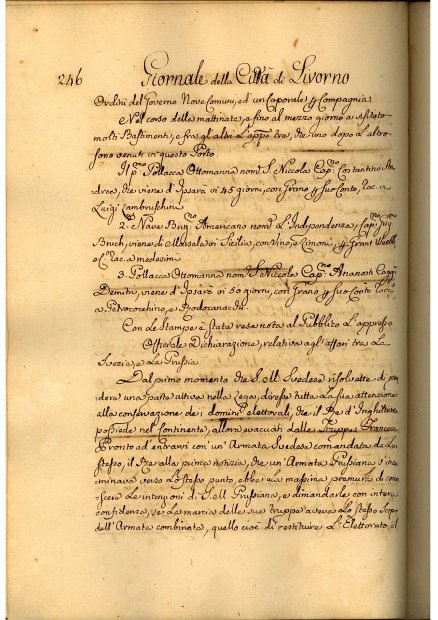 246 Giornale della Città di Livorno
Ordini del Governo Nove Comuni, ed un Caporale p Compagnia.
Nel corso della mattinata, e fino al mezzo giorno
molti Bastimenti, e fra gl'altri L'app.o tre, che uno dopo L'altro
sono venuti in questo Porto
Il p.mo Pollacca Ottomanna nom.ta S. Niccola Cap.no Costantino An
drea, che viene d'Ipsara in 45 giorni, con Grano p Suo Conto, loc. a
Luigi Lambruschini
2.a Nave Brig.no Americano nom.to L'Indipendenza, Cap.no
viene di Messala in Sicilia, con Vino, e Limoni, p Grant Webb
e C. loc. a medesimi
3. Pollacca Ottomanna nom.ta S. Niccola Cap.no Ananosti
Demitri, viene d'Ipsara in 50 giorni, con Grano p Suo Conto loc.
a Petrococchino, e Rodocanachi.
Con le Stampe è stata resa nota al Pubblico L'appresso
Offiziale Dichiarazione, relativa agl'affari tra La
Svezia, e La Prussia
Dal primo momento che S. M. Svedese risolvette di pren
dere una parte attiva nella Lega, diresse tutta La Sua attenzione
alla conservazione dei dominj elettorali, che il Re d'Inghilterra
possiede nel Continente, allora evacuati dalle Truppe Francesi
Pronto ad entrarvi con un'Armata Svedese comandata da Lui
stesso, il Re alla prima notizia, che un'Armata Prussiana s'inca
minava verso Lo stesso punto, ebbe La massima premura di cono
scere Le intenzioni di S. M. Prussiana, e dimandarle con intera
confidenza, se La marcia delle sue truppe aveva Lo stesso Scopo
dell'Armata combinata, quello cioè di restituire L'Elettorato al